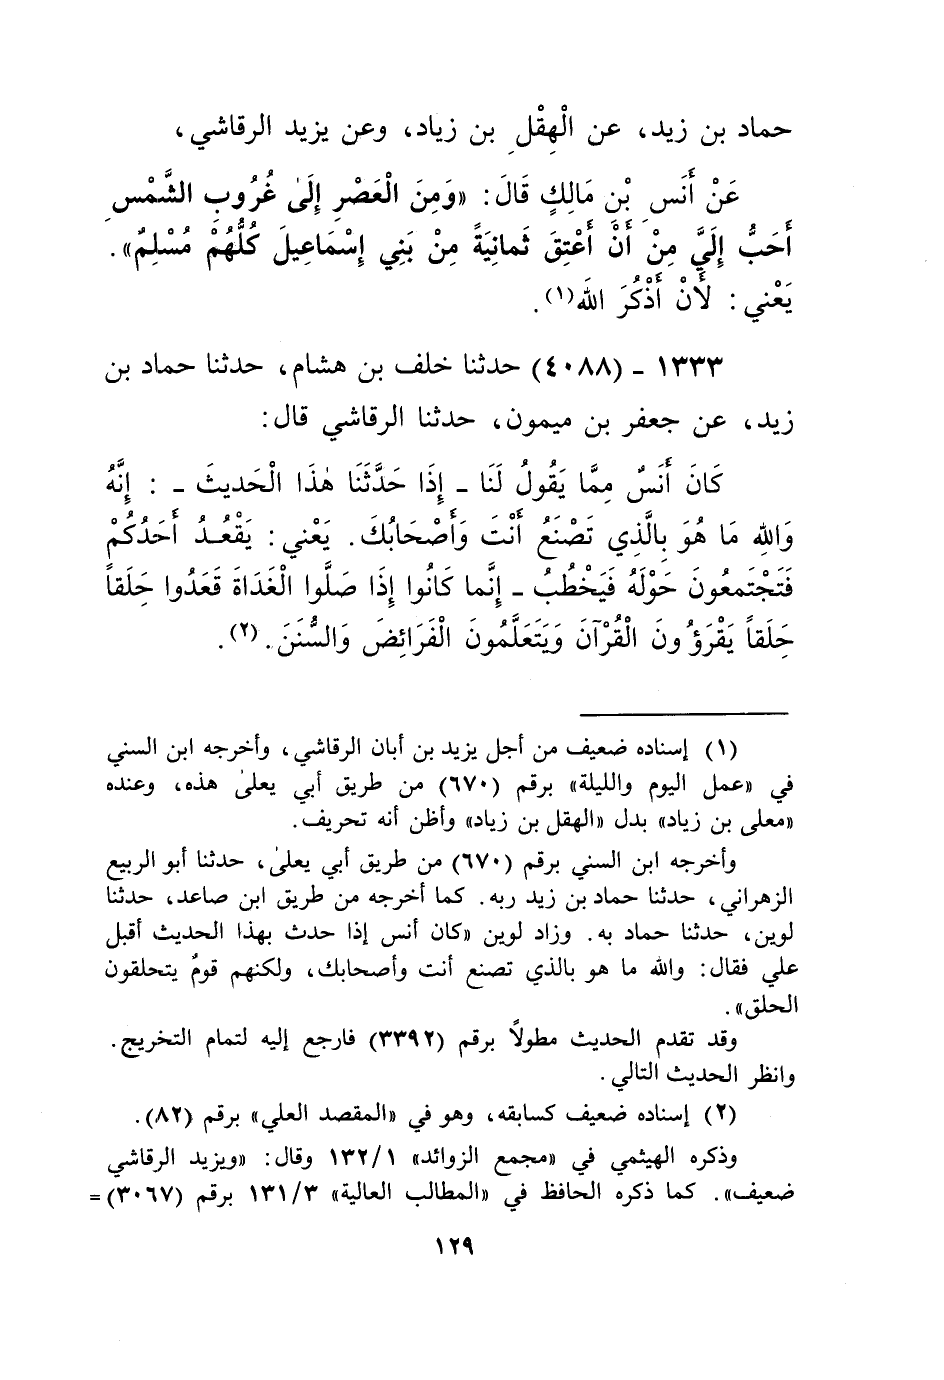 حماد بن زيد، عن الْهِقْلِ بن زياد، وعن يزيد الرقاشي،
عَنْ أَنَسِ بْنِ مَالِكٍ قَالَ: «وَمِنَ الْعَصْرِ إِلَىٰ غُرُوبِ الشَّمْسِ
أَحَبُّ إِلَيَّ مِنْ أَنْ أَعْتِقَ ثَمانِيَةً مِنْ بَنِي إِسْمَاعِيلَ كُلُّهُمْ مُسْلِمٌ».
يَعْنِي: لَأَنْ أَذْكُرَ اللَهَ(١).
١٣٣٣ - (٤٠٨٨) حدثنا خلف بن هشام، حدثنا حماد بن
زيد، عن جعفر بن ميمون، حدثنا الرقاشي قال:
كَانَ أَنَسٌ مِمَّا يَقُولُ لَنَا - إِذَا حَدَّثَنَا هٰذَا الْحَدِيثَ - : إِنَّهُ
وَاللهِ مَا هُوَ بِالَّذِي تَصْنَعُ أَنْتَ وَأَصْحَابُكَ. يَعْنِي: يَقْعُدُ أَحَدُكُمْ
فَتَجْتَمِعُونَ حَوْلَهُ فَيَخْطُبُ - إِنَّما كَانُوا إِذَا صَلَّوا الْغَدَاةَ قَعَدُوا حِلَقاً
حِلَقاً يَقْرَؤُونَ الْقُرْآنَ وَيَتَعَلَّمُونَ الْفَرَائِضَ وَالسُّنَنَ.(٢).
(١) إسناده ضعيف من أجل يزيد بن أبان الرقاشي، وأخرجه ابن السني
في «عمل اليوم والليلة» برقم (٦٧٠) من طريق أبي يعلىٰ هذه، وعنده
«معلى بن زياد» بدل «الهقل بن زياد» وأظن أنه تحريف.
وأخرجه ابن السني برقم (٦٧٠) من طريق أبي يعلىٰ، حدثنا أبو الربيع
الزهراني، حدثنا حماد بن زيد ربه. كما أخرجه من طريق ابن صاعد، حدثنا
لوين، حدثنا حماد به. وزاد لوين «كان أنس إذا حدث بهذا الحديث أقبل
علي فقال: والله ما هو بالذي تصنع أنت وأصحابك، ولكنهم قومٌ يتحلقون
الحلق».
وقد تقدم الحديث مطولاً برقم (٣٣٩٢) فارجع إليه لتمام التخريج.
وانظر الحديث التالي.
(٢) إسناده ضعيف كسابقه، وهو في «المقصد العلي» برقم (٨٢).
وذكره الهيثمي في «مجمع الزوائد» ١٣٢/١ وقال: «ويزيد الرقاشي
ضعيف». كما ذكره الحافظ في «المطالب العالية» ١٣١/٣ برقم (٣٠٦٧)=
١٢٩